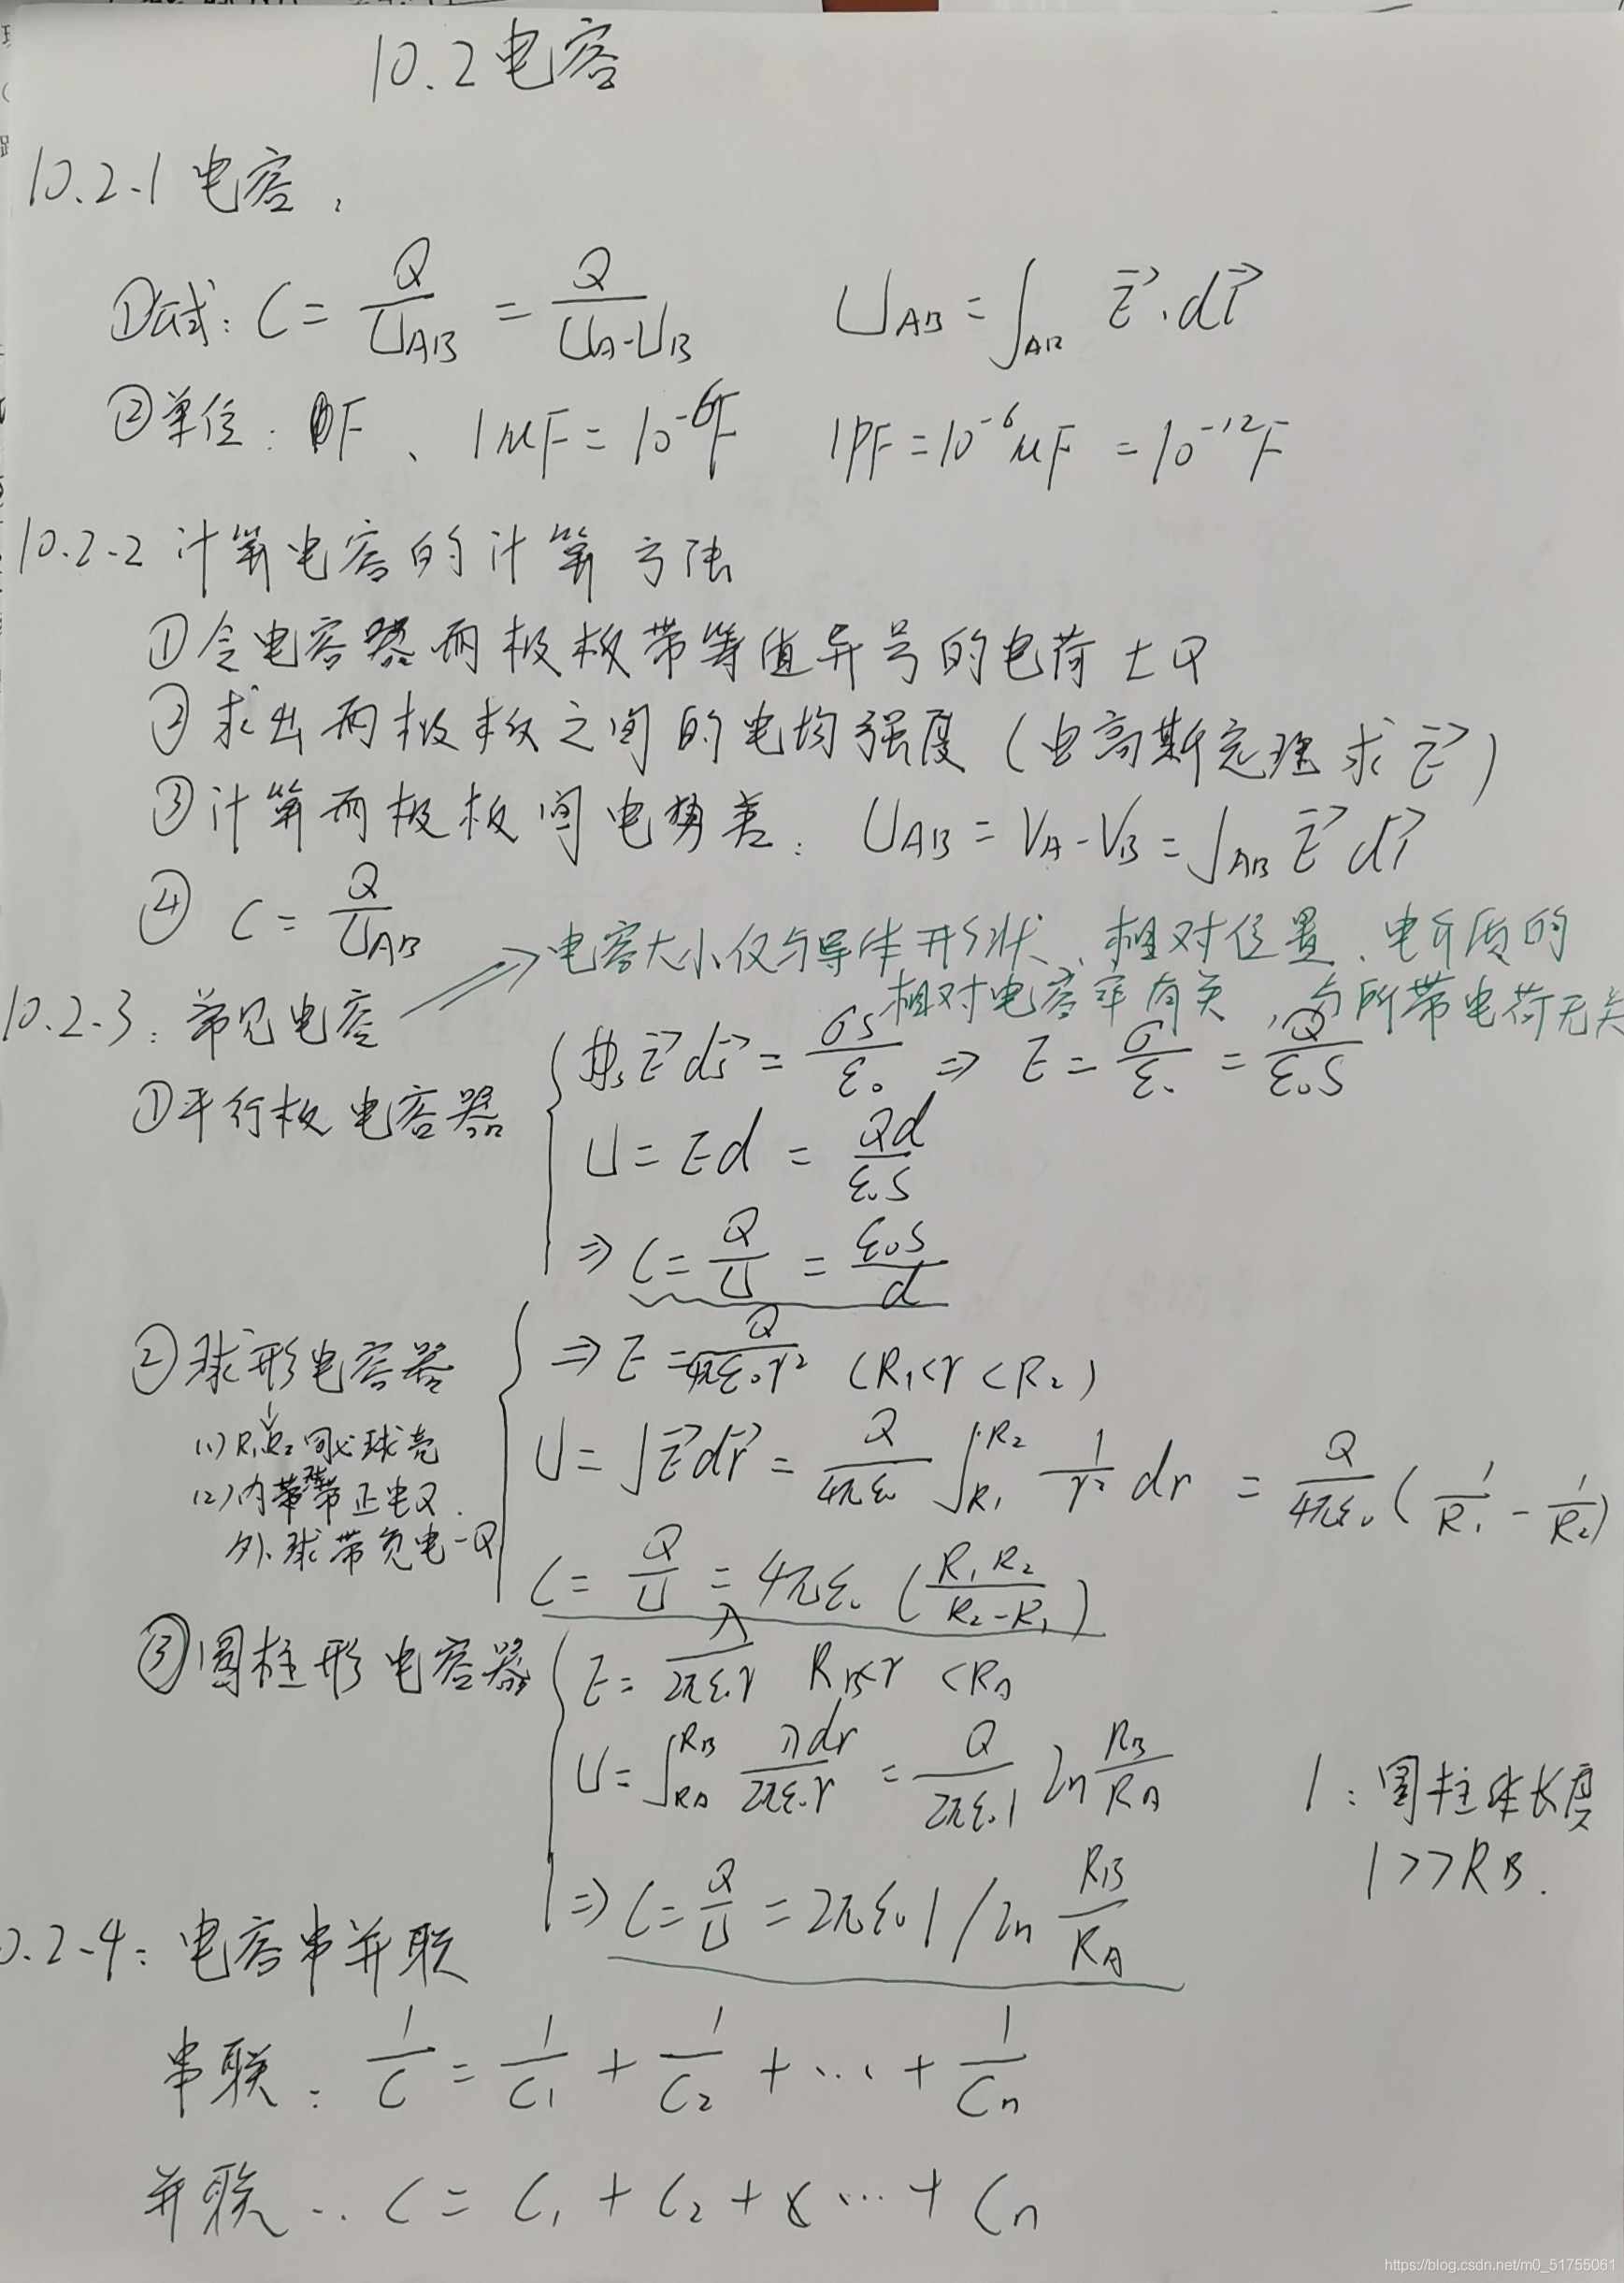 10.2 电容
10.2-1 电容:
①公式: C = Q/U_AB = Q/(U_A-U_B)    U_AB = ∫_AB E⃗·dl⃗
②单位: F、1μF = 10^-6 F    1PF = 10^-6 μF = 10^-12 F
10.2-2 计算电容的计算方法
①令电容器两极板带等值异号的电荷±Q
②求出两极板之间的电均强度(由高斯定理求E⃗)
③计算两极板间电势差: U_AB = V_A-V_B = ∫_AB E⃗ dl⃗
④ C = Q/U_AB
⇒电容大小仅与导体形状、相对位置、电介质的
相对电容率有关,与所带电荷无关
10.2-3: 常见电容
①平行板电容器
∯_s E⃗ ds⃗ = σs/ε₀ ⇒ E = σ/ε₀ = Q/(ε₀S)
U = Ed = Qd/(ε₀S)
⇒ C = Q/U = ε₀S/d
②球形电容器
(1) R₁R₂同心球壳
(2) 内球带正电Q.
外球带负电-Q
⇒ E = Q/(4πε₀r²) (R₁<r<R₂)
U = ∫E⃗dr⃗ = Q/(4πε₀) ∫_R₁^R₂ 1/r² dr = Q/(4πε₀) (1/R₁ - 1/R₂)
C = Q/U = 4πε₀ (R₁R₂/(R₂-R₁))
③圆柱形电容器
E = λ/(2πε₀r)  R_B<r<R_A
U = ∫_R_A^R_B λdr/(2πε₀r) = Q/(2πε₀l) ln R_B/R_A
l: 圆柱体长度
l>>R_B.
⇒ C = Q/U = 2πε₀l / ln R_B/R_A
0.2-4: 电容串并联
串联: 1/C = 1/C₁ + 1/C₂ + ... + 1/Cn
并联: C = C₁ + C₂ + ... + Cn
https://blog.csdn.net/m0_51755061